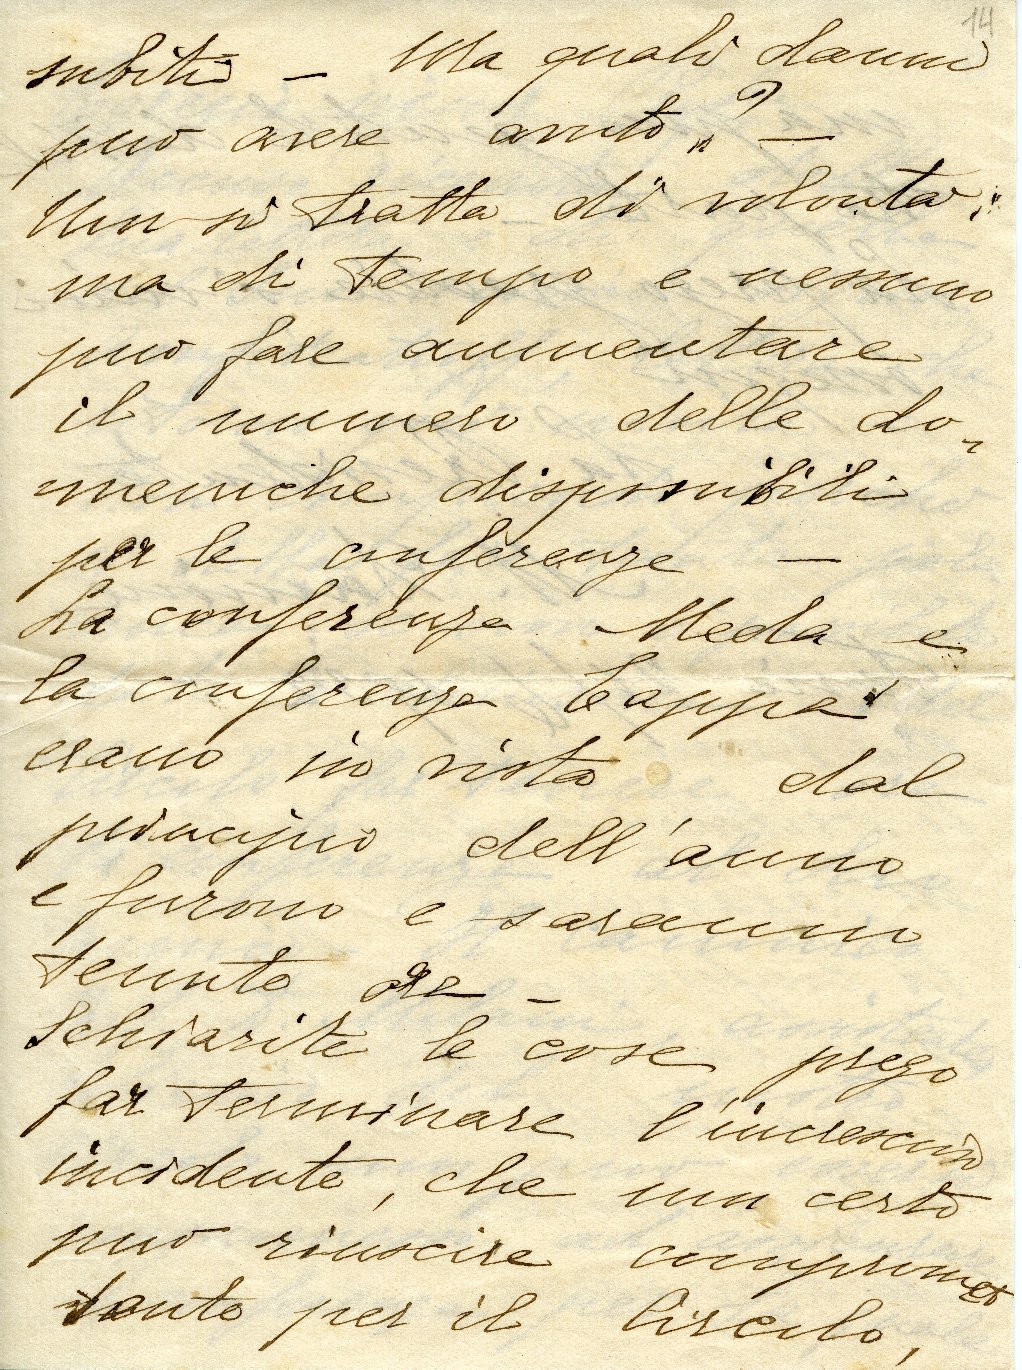 14
subiti — Ma quali danni
può avere avuto? —
Non si tratta di volontà,
ma di tempo e nessuno
può fare aumentare
il numero delle do-
meniche disponibili
per le conferenze —
La conferenza Meda e
la conferenza Cappa
erano in vista dal
principio dell'anno
e furono e saranno
tenute —
Schiarite le cose prego
far terminare l'increscioso
incidente, che non certo
può riuscire compromet
tente per il Circolo,